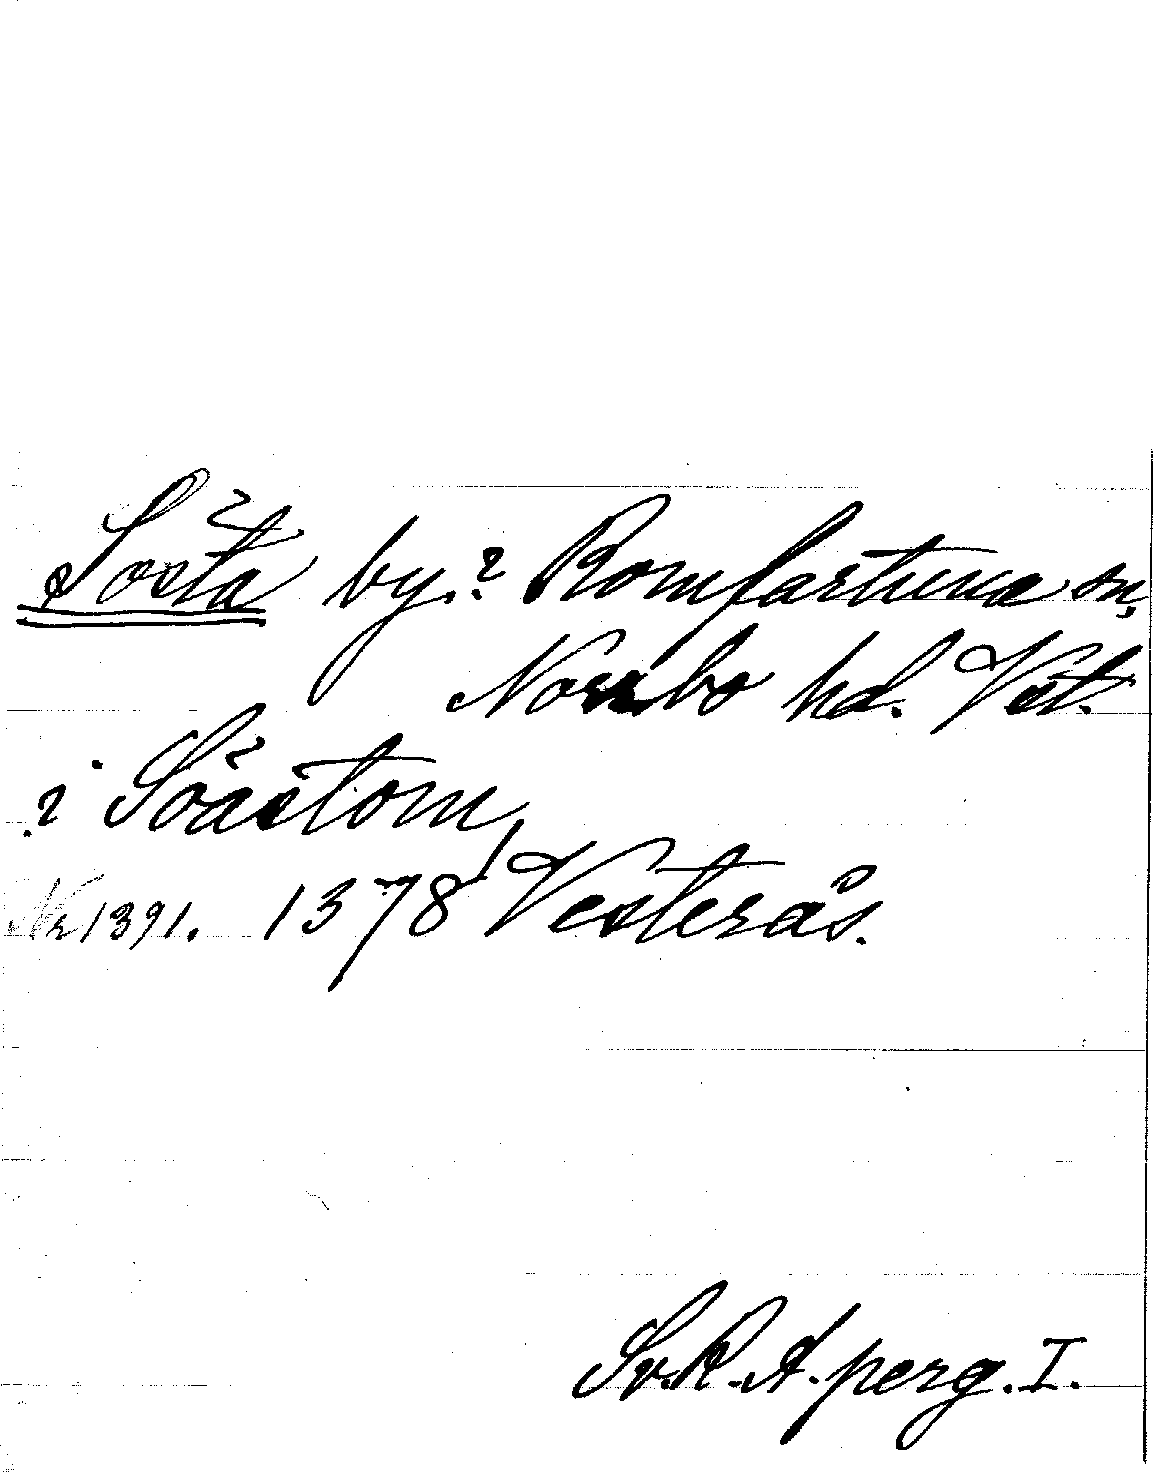 Sosta by.? Romfartuna sn,
Norrbo hd. Vstl.
i Soästom,
Nr 1391. 1378 Vesterås.
Sv. R. A. perg. I.